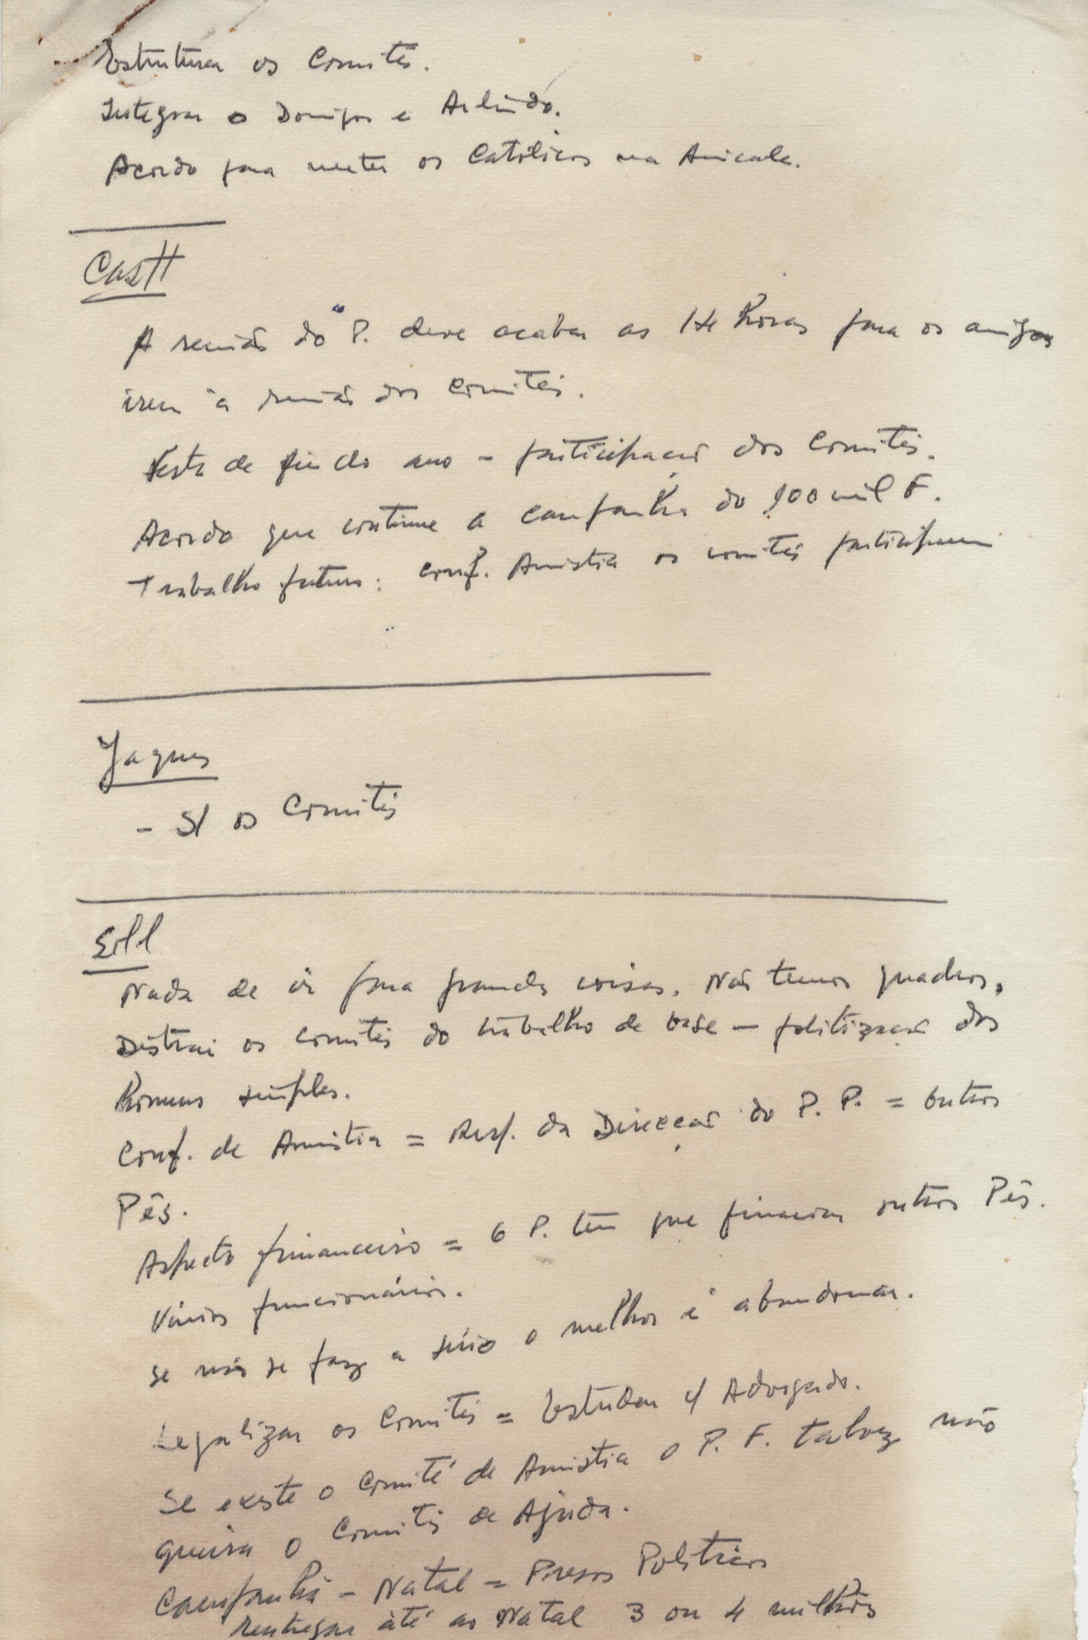 Estruturar os Comités.
Integrar o Domingos e Arlindo.
Acordo para meter os Católicos na Amicale.
Cast
A reunião do P. deve acabar as 14 horas para os amigos
irem à reunião dos comités.
Festa de fim do ano - participação dos Comités.
Acordo que continue a campanha do 100 mil F.
Trabalho futuro: conf. Amistia os comités participarem
Jaques
- S/ os Comités
Nada de ir para grandes coisas. Não temos quadros.
Distrai os comités do trabalho de base - politização dos
homens simples.
Conf. de Amistia = Resp. da Direcção do P. P. = outros
Pês.
Aspecto financeiro = o P. tem que financiar outros Pês.
Vários funcionários.
Se não se faz a sério o melhor é abandonar.
Legalizar os Comités = Estudar c/ Advogado.
Se existe o Comité de Amistia o P. F. talvez não
queira o Comités de Ajuda.
Campanha - Natal = Presos Politicos
até ao Natal 3 ou 4 milhões